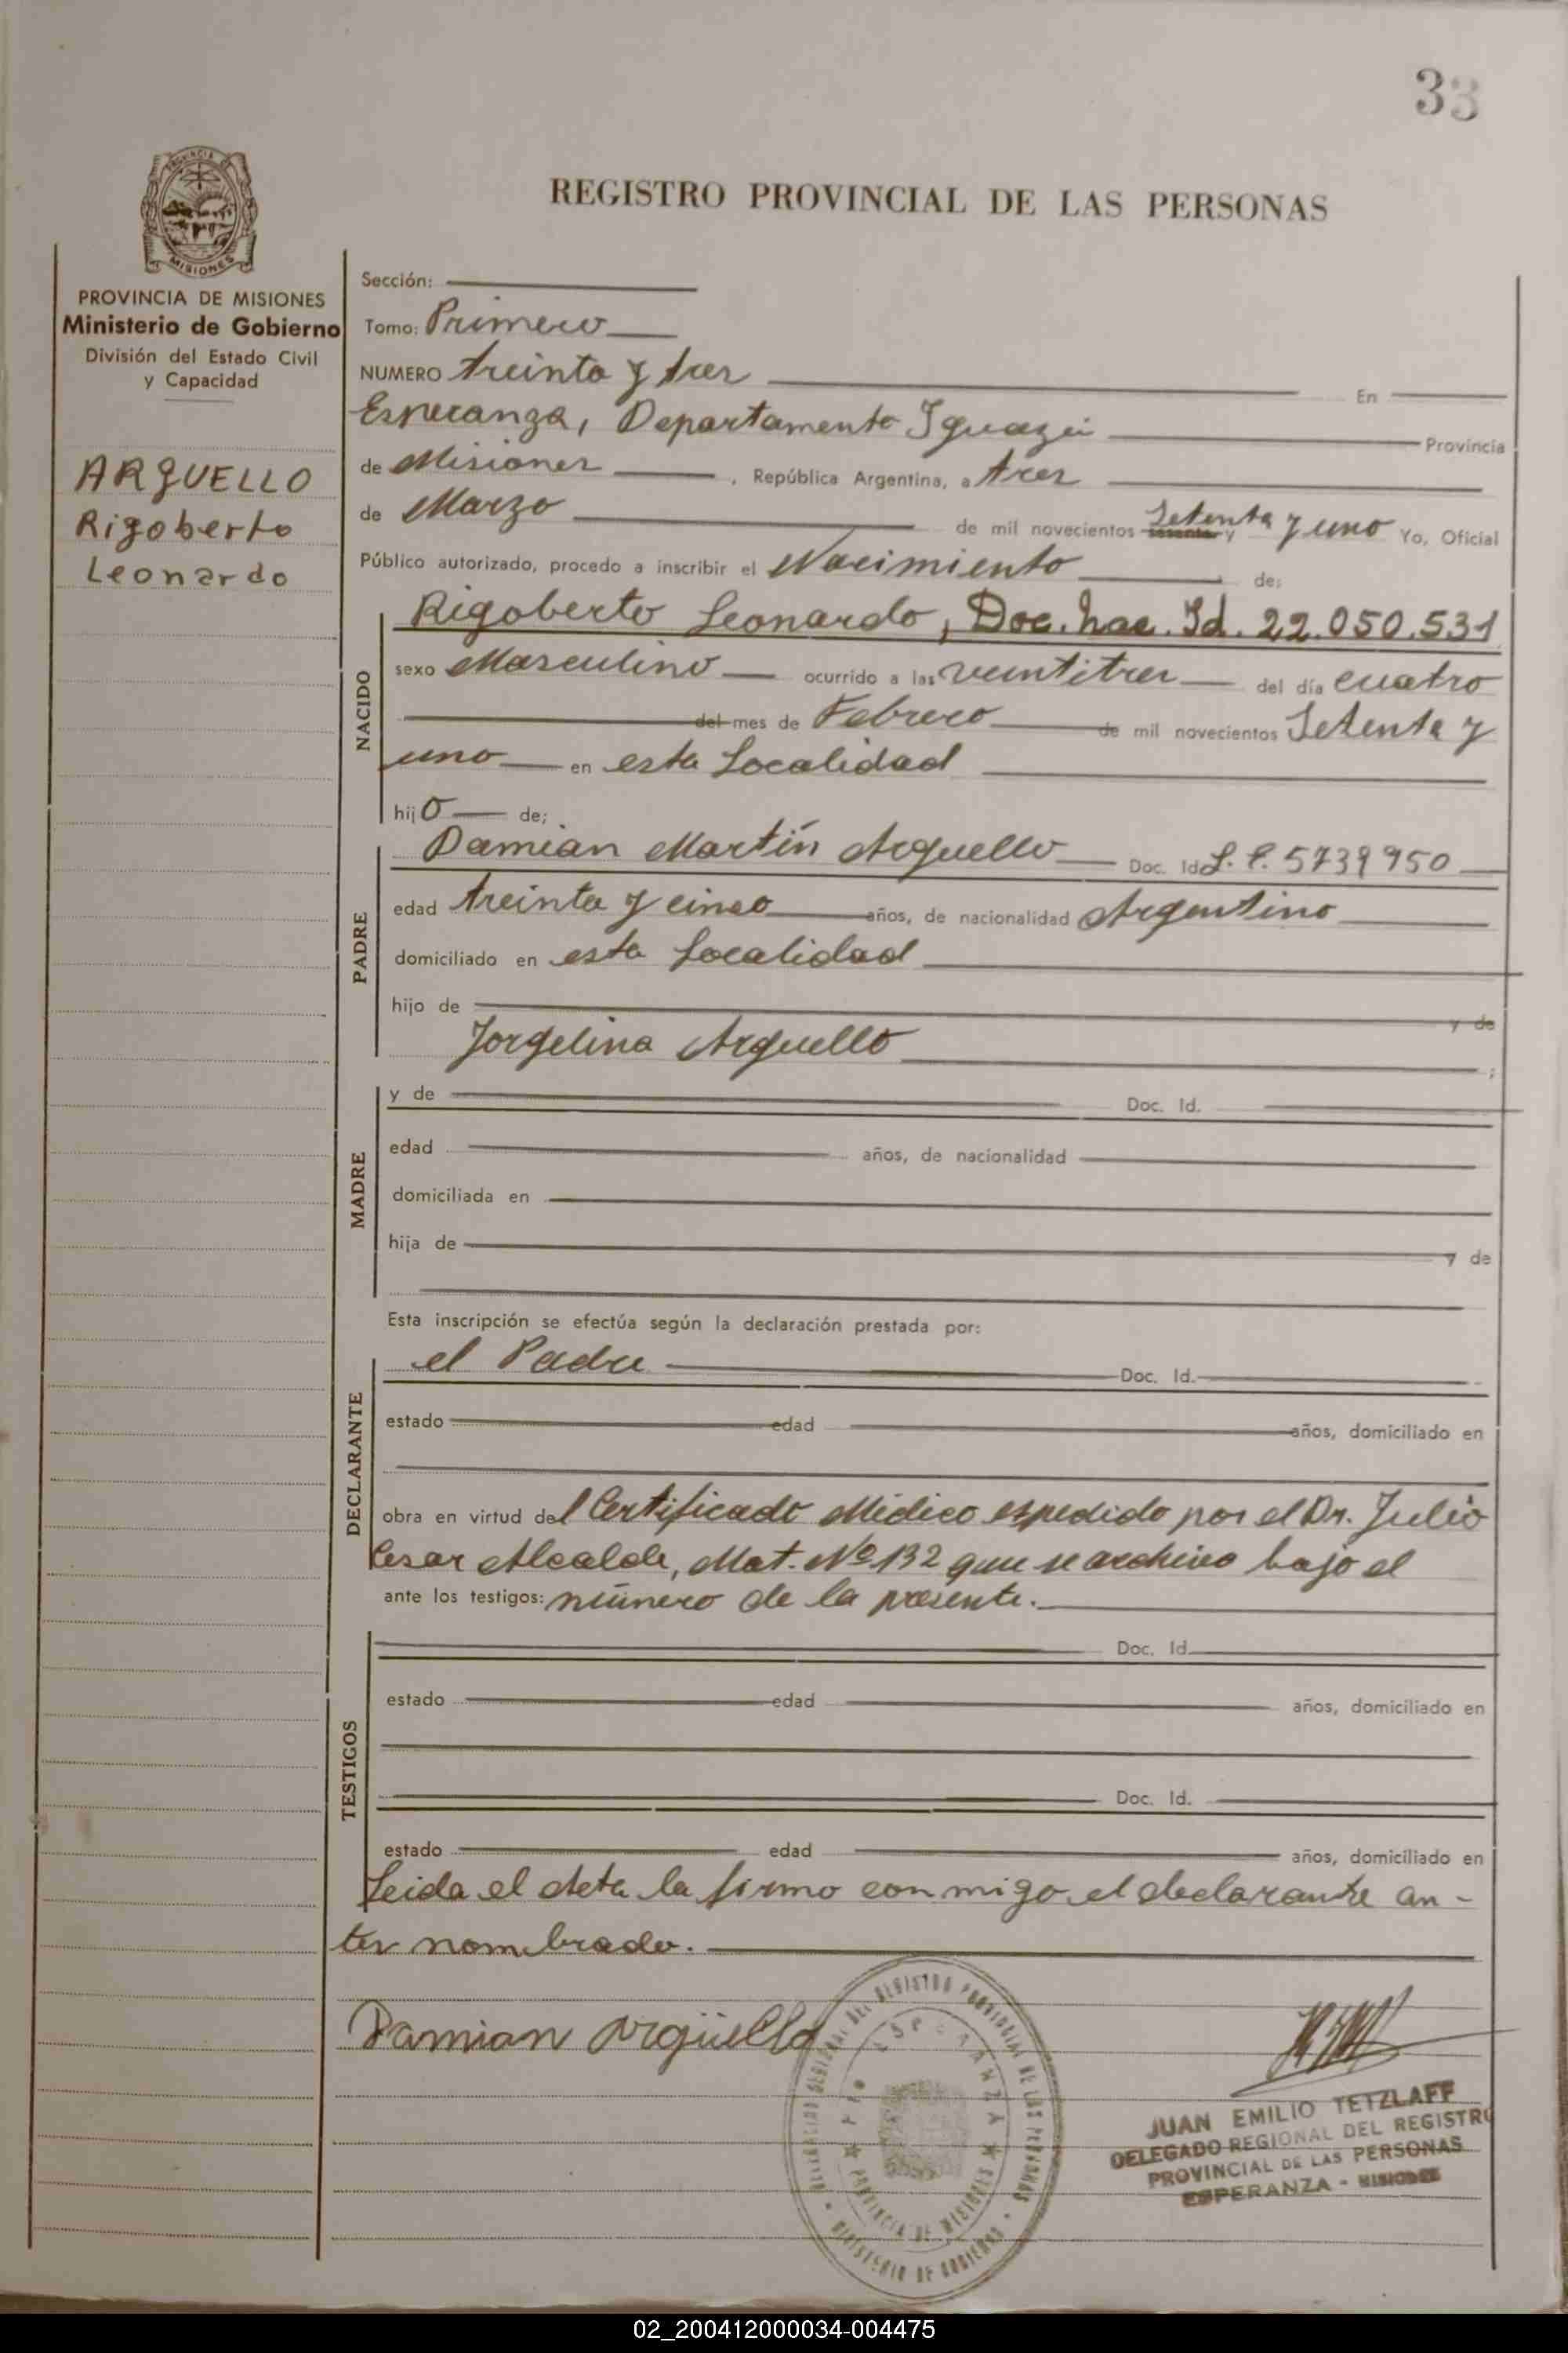 33
REGISTRO PROVINCIAL DE LAS PERSONAS
PROVINCIA DE MISIONES
Ministerio de Gobierno
División del Estado Civil
y Capacidad
ARGUELLO
Rigoberto
Leonardo
Sección:
Tomo: Primero
NUMERO treinta y tres En
Esperanza, Departamento Iguazú Provincia
de Misiones , República Argentina, a tres
de Marzo de mil novecientos sesenta y Setenta y uno Yo, Oficial
Público autorizado, procedo a inscribir el Nacimiento de:
NACIDO
Rigoberto Leonardo, Doc. Nac. Id. 22.050.531
sexo Masculino ocurrido a las veintitres del día cuatro
del mes de Febrero de mil novecientos Setenta y
uno en esta Localidad
hijo de;
PADRE
Damian Martín Arguello Doc. Id. 5739950
edad treinta y cinco años, de nacionalidad Argentino
domiciliado en esta Localidad
hijo de y de
Jorgelina Arguello ;
MADRE
y de Doc. Id.
edad años, de nacionalidad
domiciliada en
hija de y de
Esta inscripción se efectúa según la declaración prestada por:
DECLARANTE
el Padre Doc. Id.
estado edad años, domiciliado en
obra en virtud del Certificado Médico expedido por el Dr. Julio
Cesar Alcalde, Mat. Nº 132 que se archiva bajo el
ante los testigos: número de la presente.
TESTIGOS
Doc. Id.
estado edad años, domiciliado en
Doc. Id.
estado edad años, domiciliado en
Leida el Acta la firma conmigo el declarante an-
tes nombrado.
Damian Argüello
DELEGACION REGIONAL DEL REGISTRO PROVINCIAL DE LAS PERSONAS
ESPERANZA
PROVINCIA DE MISIONES
MINISTERIO DE GOBIERNO
JUAN EMILIO TETZLAFF
DELEGADO REGIONAL DEL REGISTRO
PROVINCIAL DE LAS PERSONAS
ESPERANZA - MISIONES
02_200412000034-004475